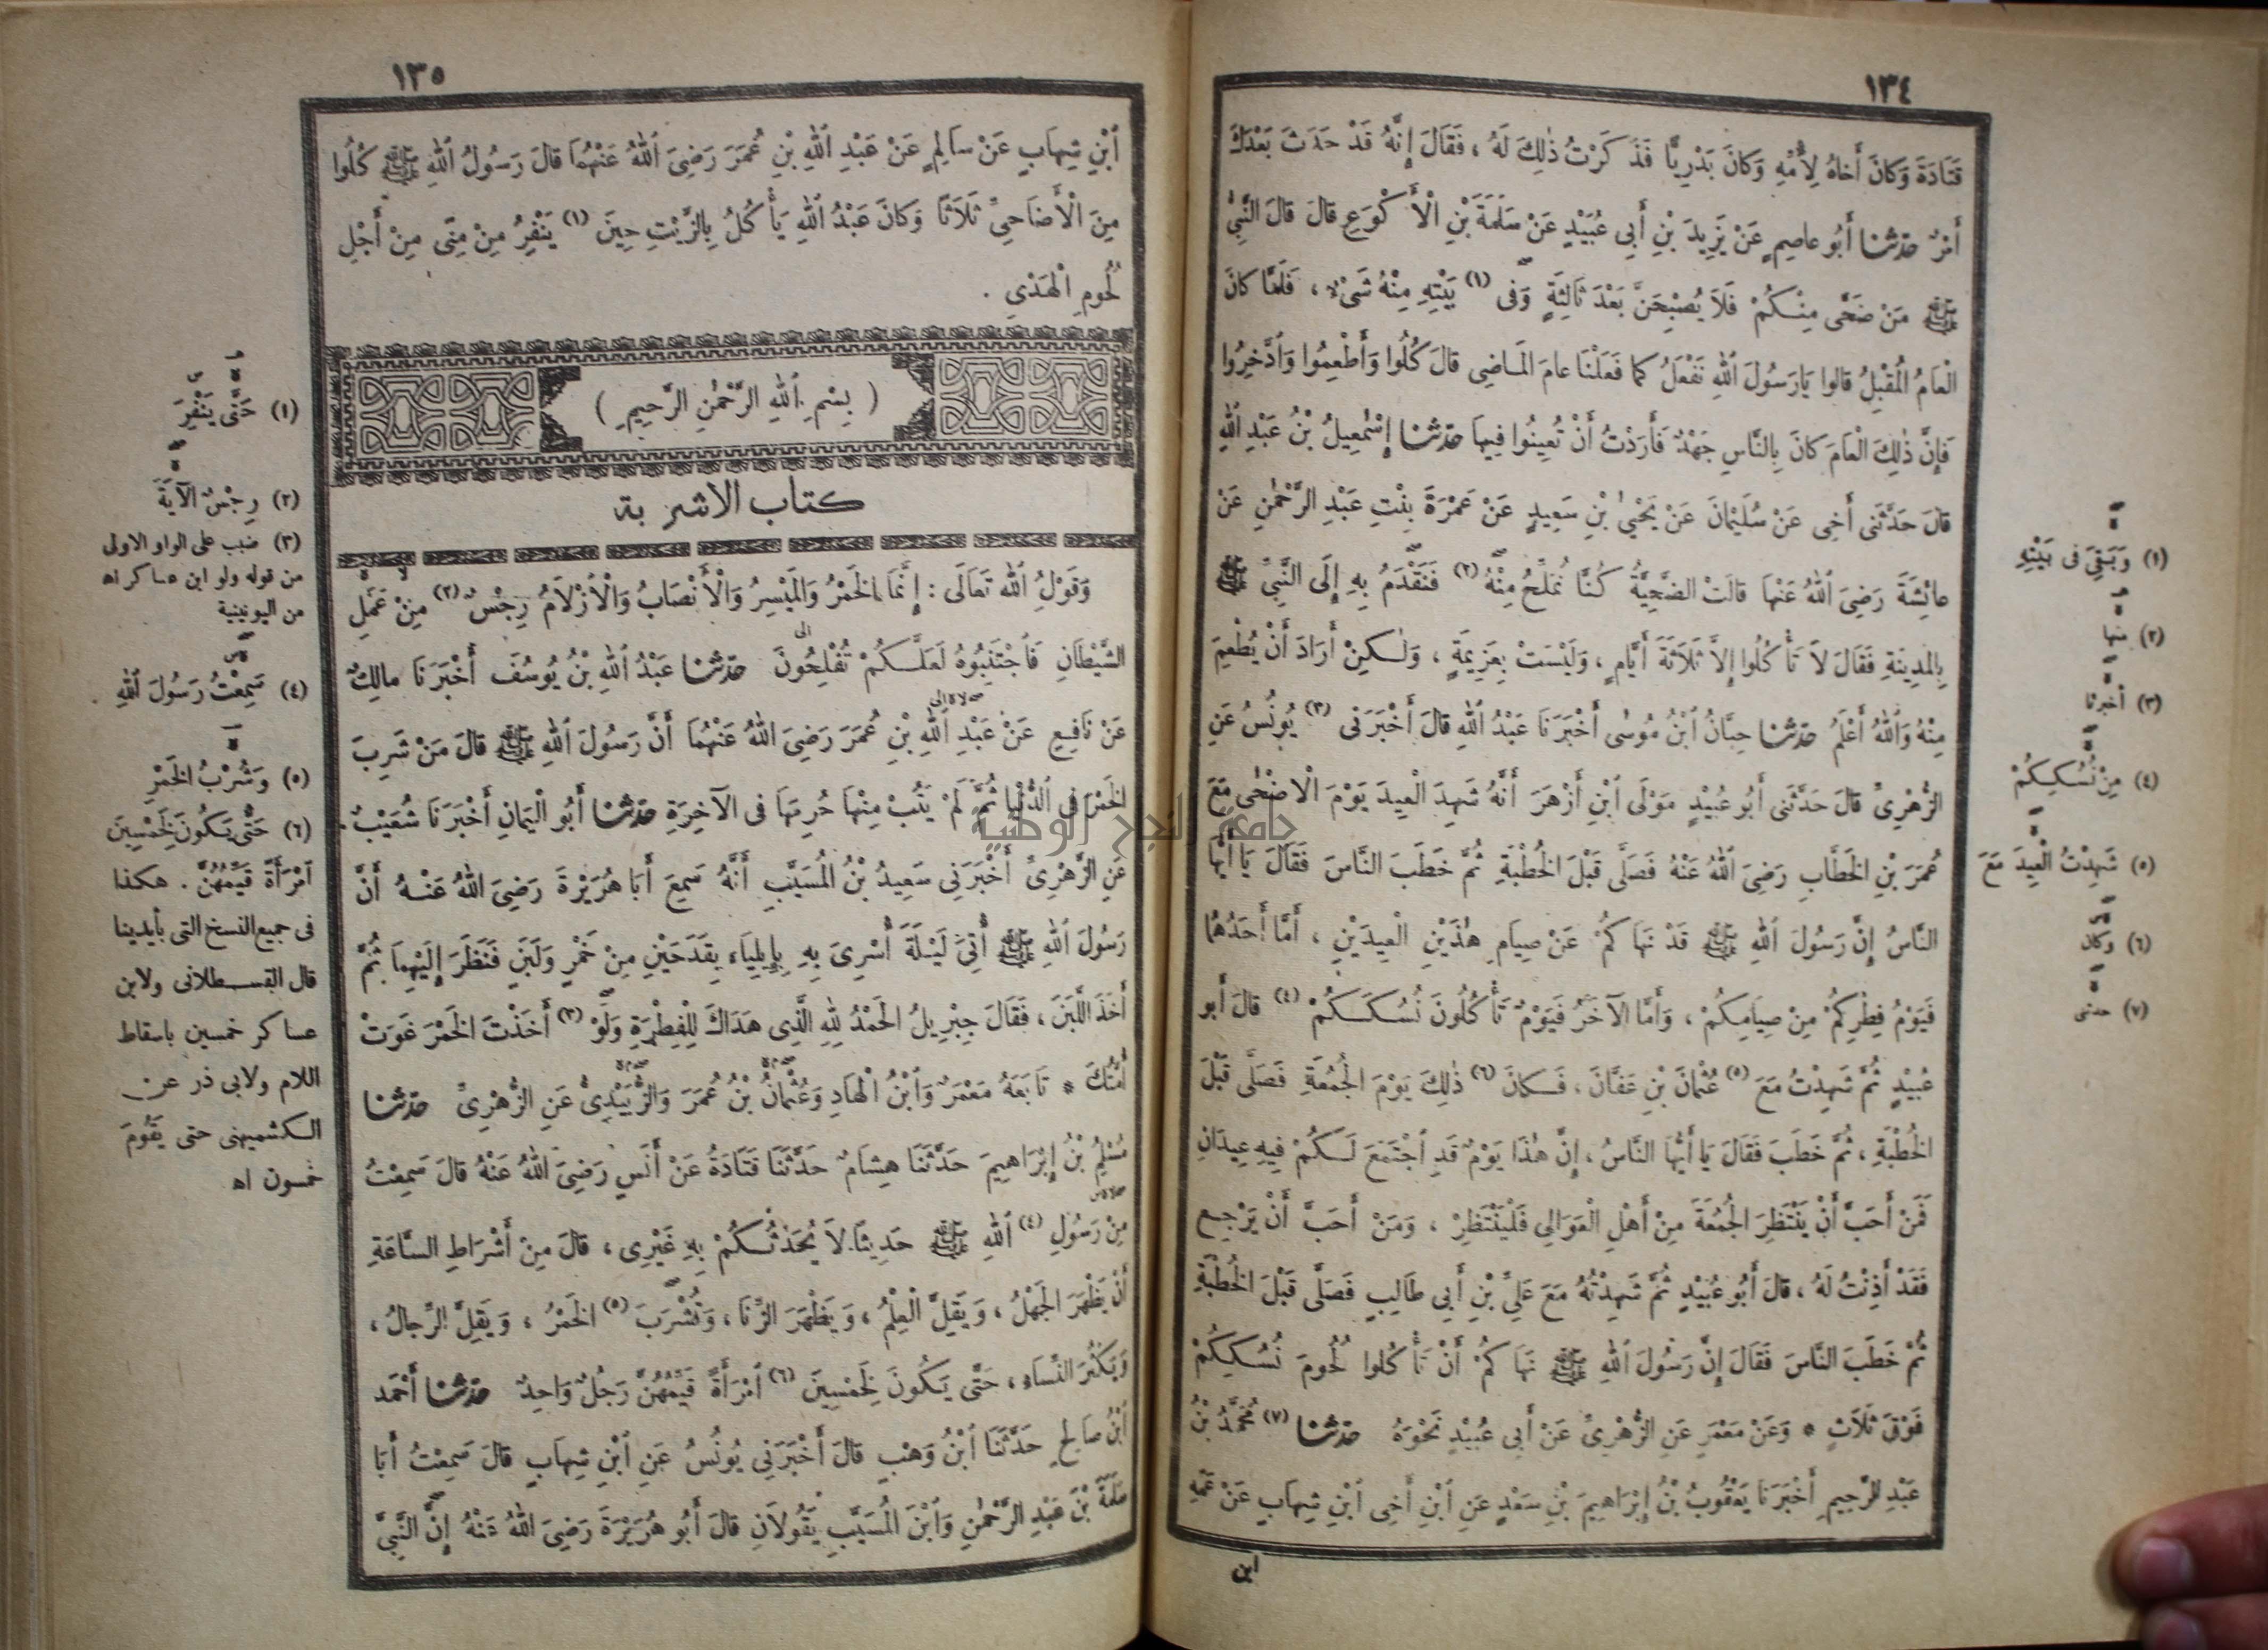 ١٣٤
قَتَادَةَ وَكَانَ أَخَاهُ لِأُمِّهِ وَكَانَ بَدْرِيًّا فَذَكَرْتُ ذٰلِكَ لَهُ ، فَقَالَ إِنَّهُ قَدْ حَدَثَ بَعْدَكَ
أَمْرٌ حدثنا أَبُو عَاصِمٍ عَنْ يَزِيدَ بْنِ أَبِي عُبَيْدٍ عَنْ سَلَمَةَ بْنِ الْأَكْوَعِ قَالَ قَالَ النَّبِيُّ
ﷺ مَنْ ضَحَّى مِنْكُمْ فَلَا يُصْبِحَنَّ بَعْدَ ثَالِثَةٍ وَفِي (١) بَيْتِهِ مِنْهُ شَيْءٌ ، فَلَمَّا كَانَ
الْعَامُ الْمُقْبِلُ قَالُوا يَا رَسُولَ اللهِ نَفْعَلُ كَمَا فَعَلْنَا عَامَ الْمَاضِي قَالَ كُلُوا وَأَطْعِمُوا وَادَّخِرُوا
فَإِنَّ ذٰلِكَ الْعَامَ كَانَ بِالنَّاسِ جَهْدٌ فَأَرَدْتُ أَنْ تُعِينُوا فِيهَا حدثنا إِسْمٰعِيلُ بْنُ عَبْدِ اللهِ
قَالَ حَدَّثَنِي أَخِي عَنْ سُلَيْمَانَ عَنْ يَحْيىٰ بْنِ سَعِيدٍ عَنْ عَمْرَةَ بِنْتِ عَبْدِ الرَّحْمٰنِ عَنْ
عَائِشَةَ رَضِيَ اللهُ عَنْهَا قَالَتْ الضَّحِيَّةُ كُنَّا نُمَلِّحُ مِنْهُ (٢) فَنَقْدَمُ بِهِ إِلَى النَّبِيِّ ﷺ
بِالْمَدِينَةِ فَقَالَ لَا تَأْكُلُوا إِلَّا ثَلَاثَةَ أَيَّامٍ ، وَلَيْسَتْ بِعَزِيمَةٍ ، وَلٰكِنْ أَرَادَ أَنْ يُطْعِمَ
مِنْهُ وَاللهُ أَعْلَمُ حدثنا حِبَّانُ ابْنُ مُوسٰى أَخْبَرَنَا عَبْدُ اللهِ قَالَ أَخْبَرَنِي (٣) يُونُسُ عَنِ
الزُّهْرِيِّ قَالَ حَدَّثَنِي أَبُو عُبَيْدٍ مَوْلَى ابْنِ أَزْهَرَ أَنَّهُ شَهِدَ الْعِيدَ يَوْمَ الْأَضْحٰى مَعَ
عُمَرَ بْنِ الْخَطَّابِ رَضِيَ اللهُ عَنْهُ فَصَلَّى قَبْلَ الْخُطْبَةِ ثُمَّ خَطَبَ النَّاسَ فَقَالَ يَا أَيُّهَا
النَّاسُ إِنَّ رَسُولَ اللهِ ﷺ قَدْ نَهَاكُمْ عَنْ صِيَامِ هٰذَيْنِ الْعِيدَيْنِ ، أَمَّا أَحَدُهُمَا
فَيَوْمُ فِطْرِكُمْ مِنْ صِيَامِكُمْ ، وَأَمَّا الْآخَرُ فَيَوْمٌ تَأْكُلُونَ نُسُكَكُمْ (٤) قَالَ أَبُو
عُبَيْدٍ ثُمَّ شَهِدْتُ مَعَ (٥) عُثْمَانَ بْنِ عَفَّانَ ، فَكَانَ (٦) ذٰلِكَ يَوْمَ الْجُمُعَةِ فَصَلَّى قَبْلَ
الْخُطْبَةِ ، ثُمَّ خَطَبَ فَقَالَ يَا أَيُّهَا النَّاسُ ، إِنَّ هٰذَا يَوْمٌ قَدِ اجْتَمَعَ لَكُمْ فِيهِ عِيدَانِ
فَمَنْ أَحَبَّ أَنْ يَنْتَظِرَ الْجُمُعَةَ مِنْ أَهْلِ الْعَوَالِي فَلْيَنْتَظِرْ ، وَمَنْ أَحَبَّ أَنْ يَرْجِعَ
فَقَدْ أَذِنْتُ لَهُ ، قَالَ أَبُو عُبَيْدٍ ثُمَّ شَهِدْتُهُ مَعَ عَلِيِّ بْنِ أَبِي طَالِبٍ فَصَلَّى قَبْلَ الْخُطْبَةِ
ثُمَّ خَطَبَ النَّاسَ فَقَالَ إِنَّ رَسُولَ اللهِ ﷺ نَهَاكُمْ أَنْ تَأْكُلُوا لُحُومَ نُسُكِكُمْ
فَوْقَ ثَلَاثٍ * وَعَنْ مَعْمَرٍ عَنِ الزُّهْرِيِّ عَنْ أَبِي عُبَيْدٍ نَحْوَهُ حدثنا (٧) مُحَمَّدُ بْنُ
عَبْدِ الرَّحِيمِ أَخْبَرَنَا يَعْقُوبُ بْنُ إِبْرَاهِيمَ بْنِ سَعْدٍ عَنِ ابْنِ أَخِي ابْنِ شِهَابٍ عَنْ عَمِّهِ
ابن
(١) وَبَقِيَ فِي بَيْتِهِ
(٢) منها
(٣) أخبرنا
(٤) مِنْ نُسُكِكُمْ
(٥) شَهِدْتُ الْعِيدَ مَعَ
(٦) وكان
(٧) حدثني
١٣٥
ابْنِ شِهَابٍ عَنْ سَالِمٍ عَنْ عَبْدِ اللهِ بْنِ عُمَرَ رَضِيَ اللهُ عَنْهُمَا قَالَ رَسُولُ اللهِ ﷺ كُلُوا
مِنَ الْأَضَاحِيِّ ثَلَاثًا وَكَانَ عَبْدُ اللهِ يَأْكُلُ بِالزَّيْتِ حِينَ (١) يَنْفِرُ مِنْ مِنًى مِنْ أَجْلِ
لُحُومِ الْهَدْيِ .
( بِسْمِ اللهِ الرَّحْمٰنِ الرَّحِيمِ )
كتاب الاشربة
وَقَوْلُ اللهِ تَعَالَى : إِنَّمَا الْخَمْرُ وَالْمَيْسِرُ وَالْأَنْصَابُ وَالْأَزْلَامُ رِجْسٌ (٢) مِنْ عَمَلِ
الشَّيْطَانِ فَاجْتَنِبُوهُ لَعَلَّكُمْ تُفْلِحُونَ حدثنا عَبْدُ اللهِ بْنُ يُوسُفَ أَخْبَرَنَا مَالِكٌ
عَنْ نَافِعٍ عَنْ عَبْدِ اللهِ بْنِ عُمَرَ رَضِيَ اللهُ عَنْهُمَا أَنَّ رَسُولَ اللهِ ﷺ قَالَ مَنْ شَرِبَ
الْخَمْرَ فِي الدُّنْيَا ثُمَّ لَمْ يَتُبْ مِنْهَا حُرِمَهَا فِي الْآخِرَةِ حدثنا أَبُو الْيَمَانِ أَخْبَرَنَا شُعَيْبٌ
عَنِ الزُّهْرِيِّ أَخْبَرَنِي سَعِيدُ بْنُ الْمُسَيَّبِ أَنَّهُ سَمِعَ أَبَا هُرَيْرَةَ رَضِيَ اللهُ عَنْهُ أَنَّ
رَسُولَ اللهِ ﷺ أُتِيَ لَيْلَةَ أُسْرِيَ بِهِ بِإِيلِيَاءَ بِقَدَحَيْنِ مِنْ خَمْرٍ وَلَبَنٍ فَنَظَرَ إِلَيْهِمَا ثُمَّ
أَخَذَ اللَّبَنَ ، فَقَالَ جِبْرِيلُ الْحَمْدُ لِلّٰهِ الَّذِي هَدَاكَ لِلْفِطْرَةِ وَلَوْ (٣) أَخَذْتَ الْخَمْرَ غَوَتْ
أُمَّتُكَ * تَابَعَهُ مَعْمَرٌ وَابْنُ الْهَادِ وَعُثْمَانُ بْنُ عُمَرَ وَالزُّبَيْدِيُّ عَنِ الزُّهْرِيِّ حدثنا
مُسْلِمُ بْنُ إِبْرَاهِيمَ حَدَّثَنَا هِشَامٌ حَدَّثَنَا قَتَادَةُ عَنْ أَنَسٍ رَضِيَ اللهُ عَنْهُ قَالَ سَمِعْتُ
مِنْ رَسُولِ (٤) اللهِ ﷺ حَدِيثًا لَا يُحَدِّثُكُمْ بِهِ غَيْرِي ، قَالَ مِنْ أَشْرَاطِ السَّاعَةِ
أَنْ يَظْهَرَ الْجَهْلُ ، وَيَقِلَّ الْعِلْمُ ، وَيَظْهَرَ الزِّنَا ، وَتُشْرَبَ (٥) الْخَمْرُ ، وَيَقِلَّ الرِّجَالُ ،
وَيَكْثُرَ النِّسَاءُ ، حَتَّى يَكُونَ لِخَمْسِينَ (٦) امْرَأَةً قَيِّمُهُنَّ رَجُلٌ وَاحِدٌ حدثنا أَحْمَدُ
ابْنُ صَالِحٍ حَدَّثَنَا ابْنُ وَهْبٍ قَالَ أَخْبَرَنِي يُونُسُ عَنِ ابْنِ شِهَابٍ قَالَ سَمِعْتُ أَبَا
سَلَمَةَ بْنَ عَبْدِ الرَّحْمٰنِ وَابْنَ الْمُسَيَّبِ يَقُولَانِ قَالَ أَبُو هُرَيْرَةَ رَضِيَ اللهُ عَنْهُ إِنَّ النَّبِيَّ
(١) حَتَّى يَنْفِرَ
(٢) رِجْسٌ الْآيَةَ
(٣) ضبب على الواو الاولى
من قوله ولو ابن عساكر اه
من اليونينية
(٤) سَمِعْتُ رَسُولَ اللهِ
(٥) وَشُرْبُ الْخَمْرِ
(٦) حَتَّى يَكُونَ لِخَمْسِينَ
امْرَأَةً قَيِّمُهُنَّ . هكذا
في جميع النسخ التي بأيدينا
قال القسطلاني ولابن
عساكر خمسين باسقاط
اللام ولابي ذر عن
الكشميهني حتى يَقُومَ
خمسون اه
جامعة النجاح الوطنية